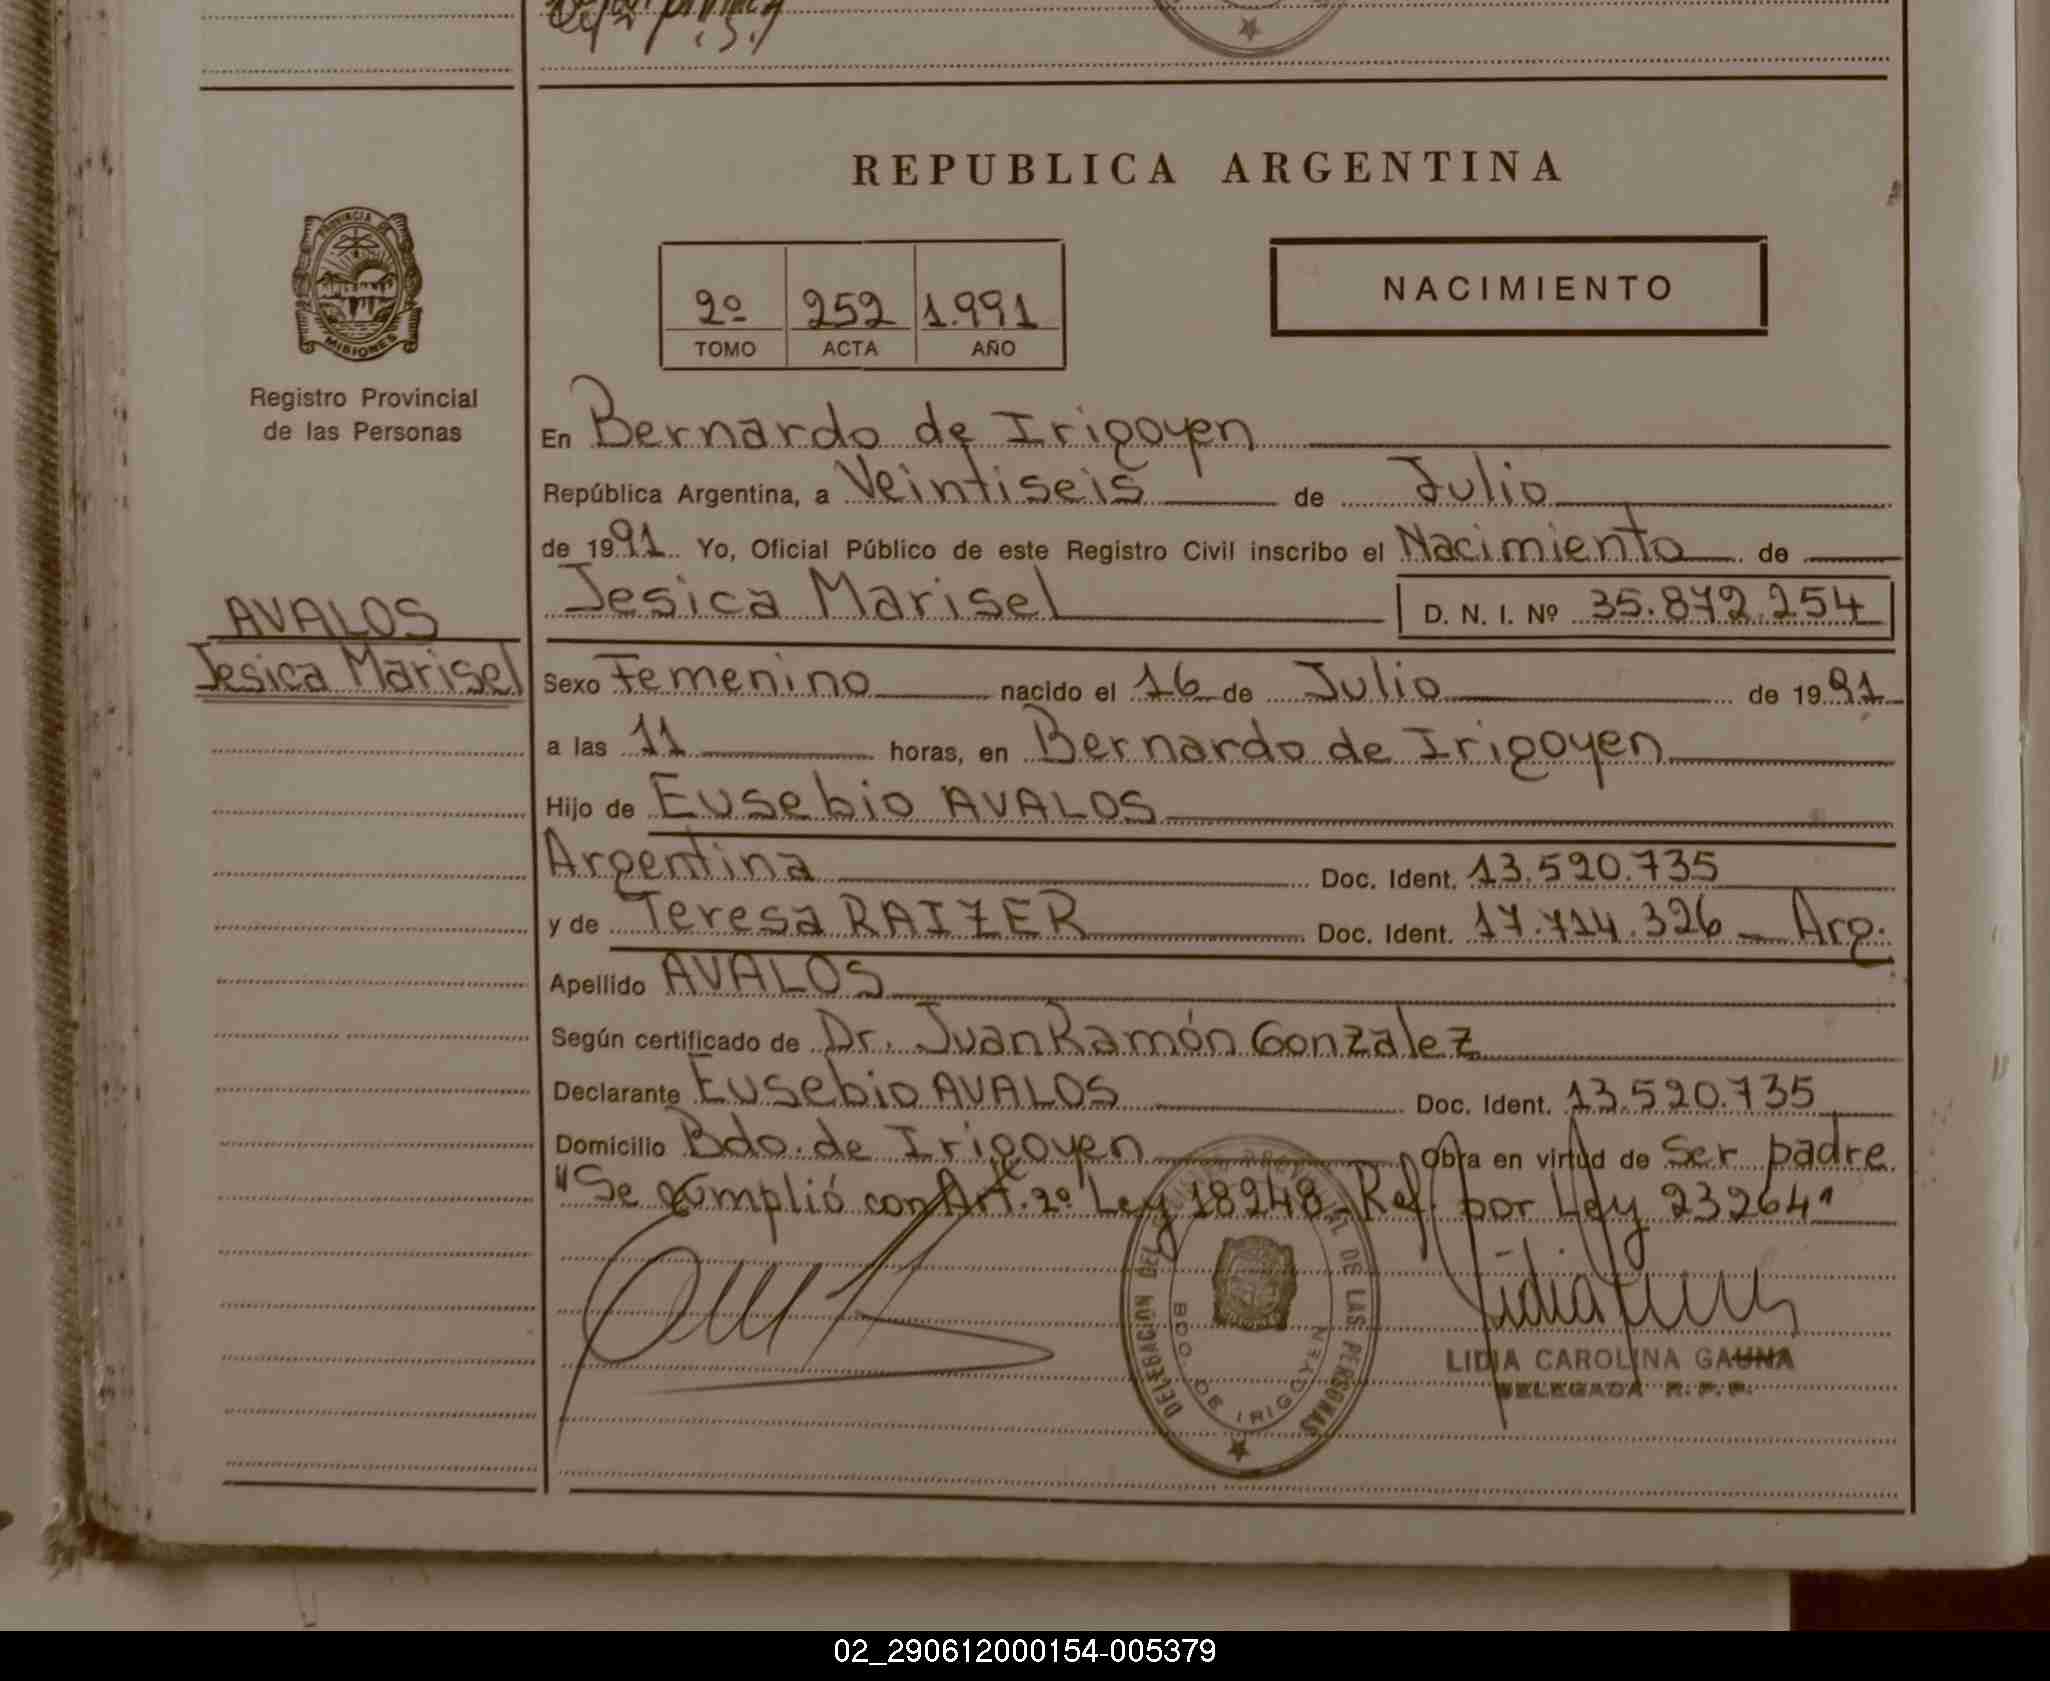 REPUBLICA ARGENTINA
PROVINCIA DE
MISIONES
Registro Provincial
de las Personas
NACIMIENTO
2º 252 1.991
TOMO ACTA AÑO
En Bernardo de Irigoyen
República Argentina, a Veintiseis de Julio
de 1991 Yo, Oficial Público de este Registro Civil inscribo el Nacimiento de
Jesica Marisel D. N. I. Nº 35.872.254
AVALOS
Jesica Marisel
Sexo Femenino nacido el 16 de Julio de 1991
a las 11 horas, en Bernardo de Irigoyen
Hijo de Eusebio AVALOS
Argentina Doc. Ident. 13.520.735
y de Teresa RAIZER Doc. Ident. 17.714.326 _ Arg.
Apellido AVALOS
Según certificado de Dr. Juan Ramón Gonzalez
Declarante Eusebio AVALOS Doc. Ident. 13.520.735
Domicilio Bdo. de Irigoyen Obra en virtud de Ser padre
"Se cumplió con Art. 2º Ley 18248 - Ref. por Ley 23264"
DELEGACION DEL REGISTRO PROVINCIAL DE LAS PERSONAS
BDO. DE IRIGOYEN
LIDIA CAROLINA GAUNA
DELEGADA R. P. P.
02_290612000154-005379